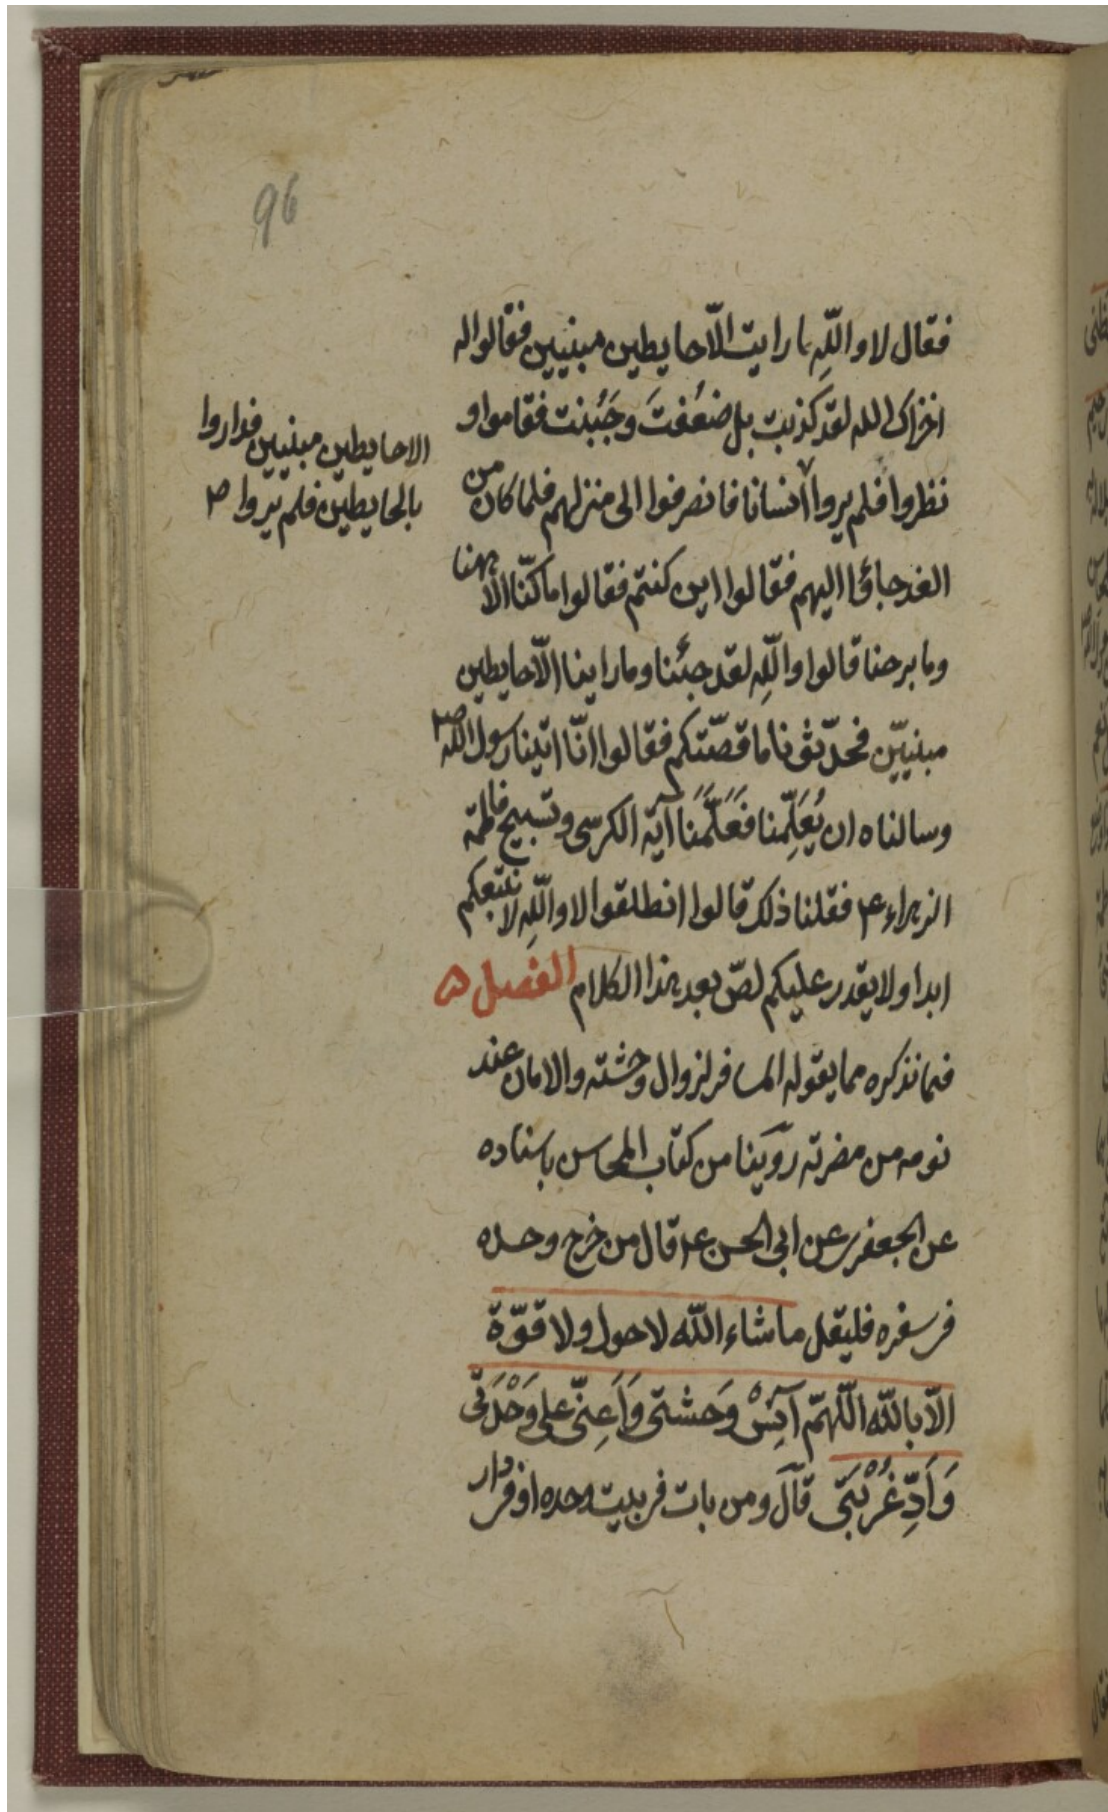 96
فقال لا واللّه ما رايت الّا حايطين مبنيين فقالوا له
اخزاك الله لقد كذبت بل ضعُفتَ وجَبُنت فقاموا و
نظروا فلم يروا انسانا فانصرفوا الى منزلهم فلما كان من
الاحايطين مبنيين فداروا
بالحايطين فلم يروا ص
الغد جاؤا اليهم فقالوا اين كنتم فقالوا ما كنّا الّا هنا
وما برحنا قالوا واللّه لقد جئنا وما راينا الّا حايطين
مبنييّن فحدّثونا ما قصّتكم فقالوا انّا اتينا رسول اللّه ص
وسالناه ان يُعَلِّمنا فَعَلَّمَنَا آية الكرسى وتسبيح فاطمة
الزهراء ع فقلنا ذلك قالوا انطلقوا لا واللّه لا نتبعكم
ابدا ولا يقدر عليكم لصّ بعد هذا الكلام الفصل ۵
فيما نذكره مما يقوله المسافر لزوال وحشته والامان عند
نومه من مضرته روّينا من كتاب المحاسن باسناده
عن الجعفرى عن ابى الحسن ع قال من خرج وحده
فى سفره فليقل ما شاء اللّه لا حول ولا قوّة
الّا باللّه اللّهمّ آنِسْ وَحشتى وَاَعِنّى على وَحْدَتى
وَاَدِّ غُرْبَتى قال ومن بات فى بيت وحده او فى دار